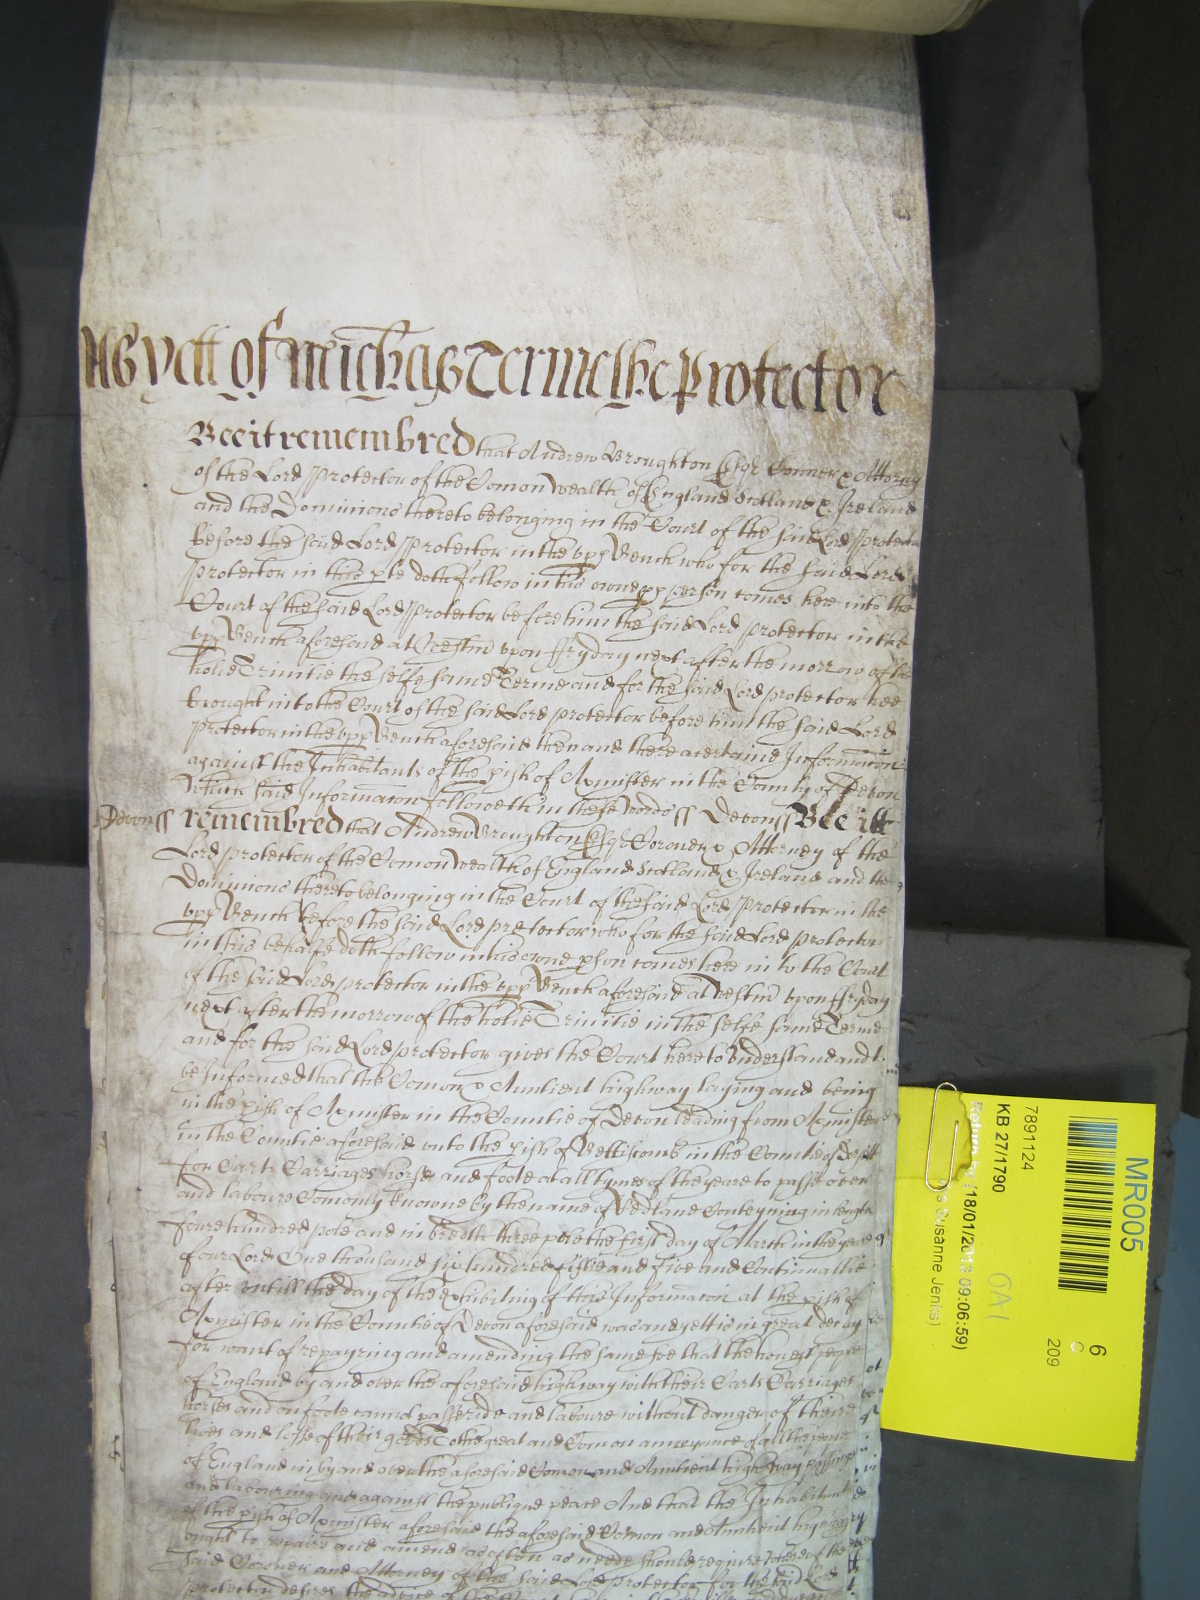 As yett of Michas Terme the Protector
Bee it remembred that Andrew Broughton Esqr Coroner & Attorny
of the Lord Protector of the Comonwealth of England Scotland & Ireland
and the Dominions thereto belonging in the Court of the said Lord Protector
before the said Lord Protector in the upp Bench who for the said Lord
Protector in this pte doth follow in his owne pp person comes here into the
Court of the said Lord Protector before him the said Lord Protector in the
upp Bench aforesaid at Westm upon ffryday next after the morrow of the
holie Trinitie the selfe same Terme and for the said Lord Protector hee
brought into the Court of the said Lord Protector before him the said Lord
Protector in the upp Bench aforesaid then and there a certaine Informacon
against the Inhabitants of the pish of Axmister in the County of Devon
Which said Informacon followeth in these words ss Devon ss Bee itt
Devon ss remembred that Andrew Broughton Esqr Coroner & Attorney of the
Lord protector of the Comonwealth of England Scotland & Ireland and the
Dominions thereto belonging in the Court of the said Lord Protector in the
upp Bench before the said Lord protector who for the said Lord protector
in this behalfe doth follow in his owne pson comes here in to the Court
of the said Lord protector in the upp Bench aforesaid at Westm upon ffryday
next after the morrow of the holie Trinitie in the selfe same Terme
and for the said Lord protector gives the Court here to understand and
be Informed that the Comon & Auntient highway laying and being
in the pish of Axmister in the Countie of Devon leading from Axmister
in the Countie aforesaid unto the pish of Wettiscomb in the Countie of Dorsett
for Carts Carriages horse and foote at all tymes of the yeare to passe over
and laboure Comonly knowne by the name of Wedlane Conteyning in length
foure hundred pole and in bredth three pole the first day of March in the yeare
of our Lord One thousand six hundred fiftie and five and Continuallie
after untill the day of the exhibiting of this Informacon at the pish of
Axmister in the Countie of Devon aforesaid was and yett is in great decay
for want of repayring and amending the same soe that the honest people
of England by and over the aforesaid highway with their Carts Carriages
horses and on foote cannot passe ride and laboure without danger of their
lives and losse of their goods To the great and Comon annoyance of all the people
of England in by and over the aforesaid Comon and Auntient high way passing
and labouring and against the publique peace And that the Inhabitants
of the pish of Axmister aforesaid the aforesaid Comon and Auntient highway
ought to repaire and amend as often as neede should require Wherefore the
said Coroner and Attorney of the said Lord protector for the said Lord
protector desires the advice of the Court
MR005
6
C
209
7891124
KB 27/1790
Return by (18/01/2019 09:06:59)
Susanne Jenks)